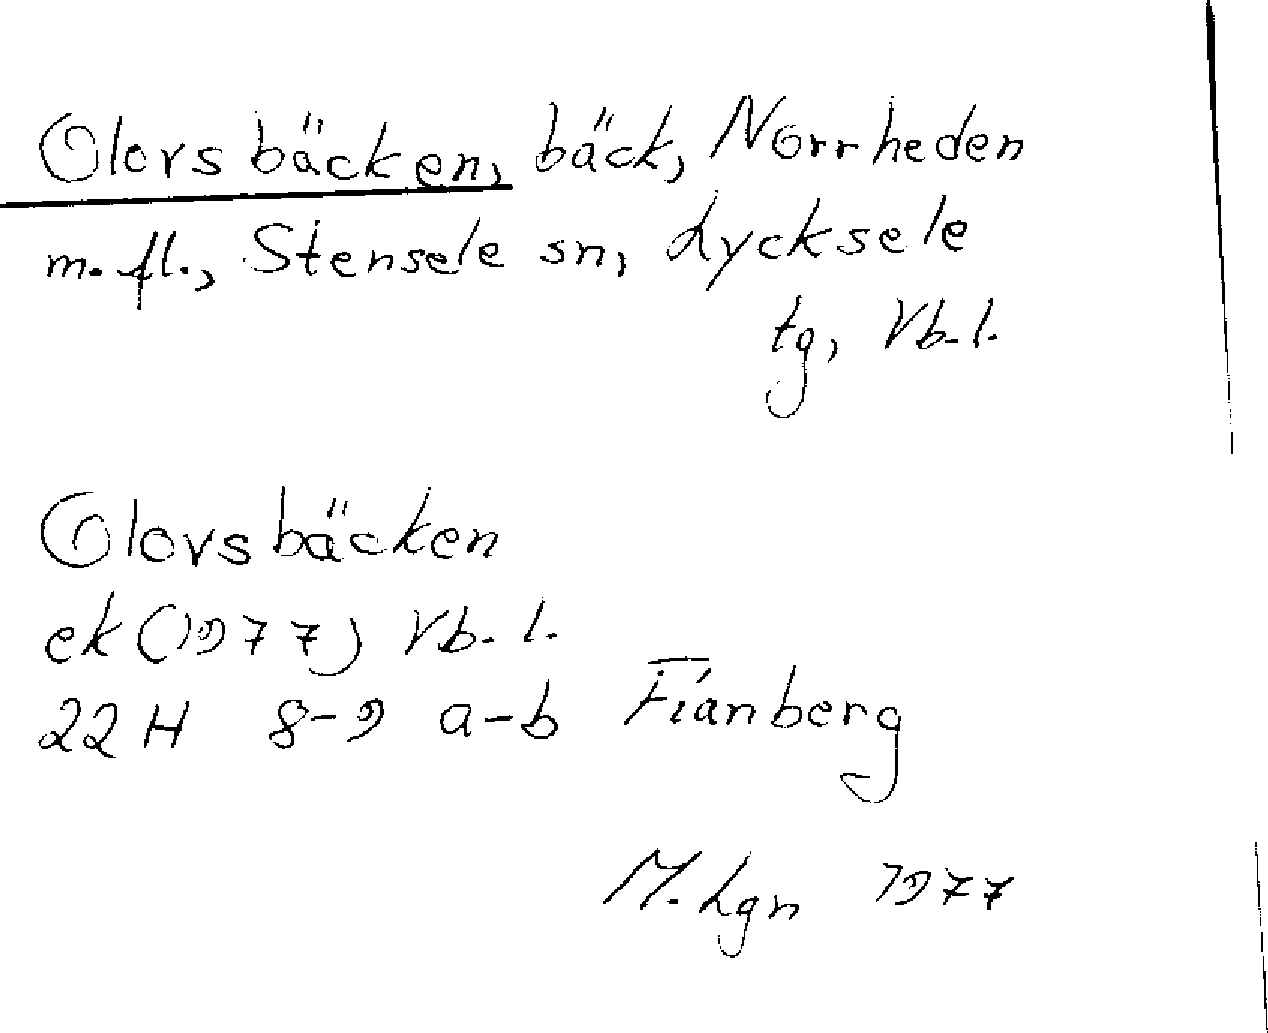 Olovsbäcken, bäck, Norrheden
m. fl., Stensele sn, Lycksele
tg, Vb. l.
Olovsbäcken
ek (1977) Vb. l.
22 H 8-9 a-b Fianberg
M. Lgn 1977